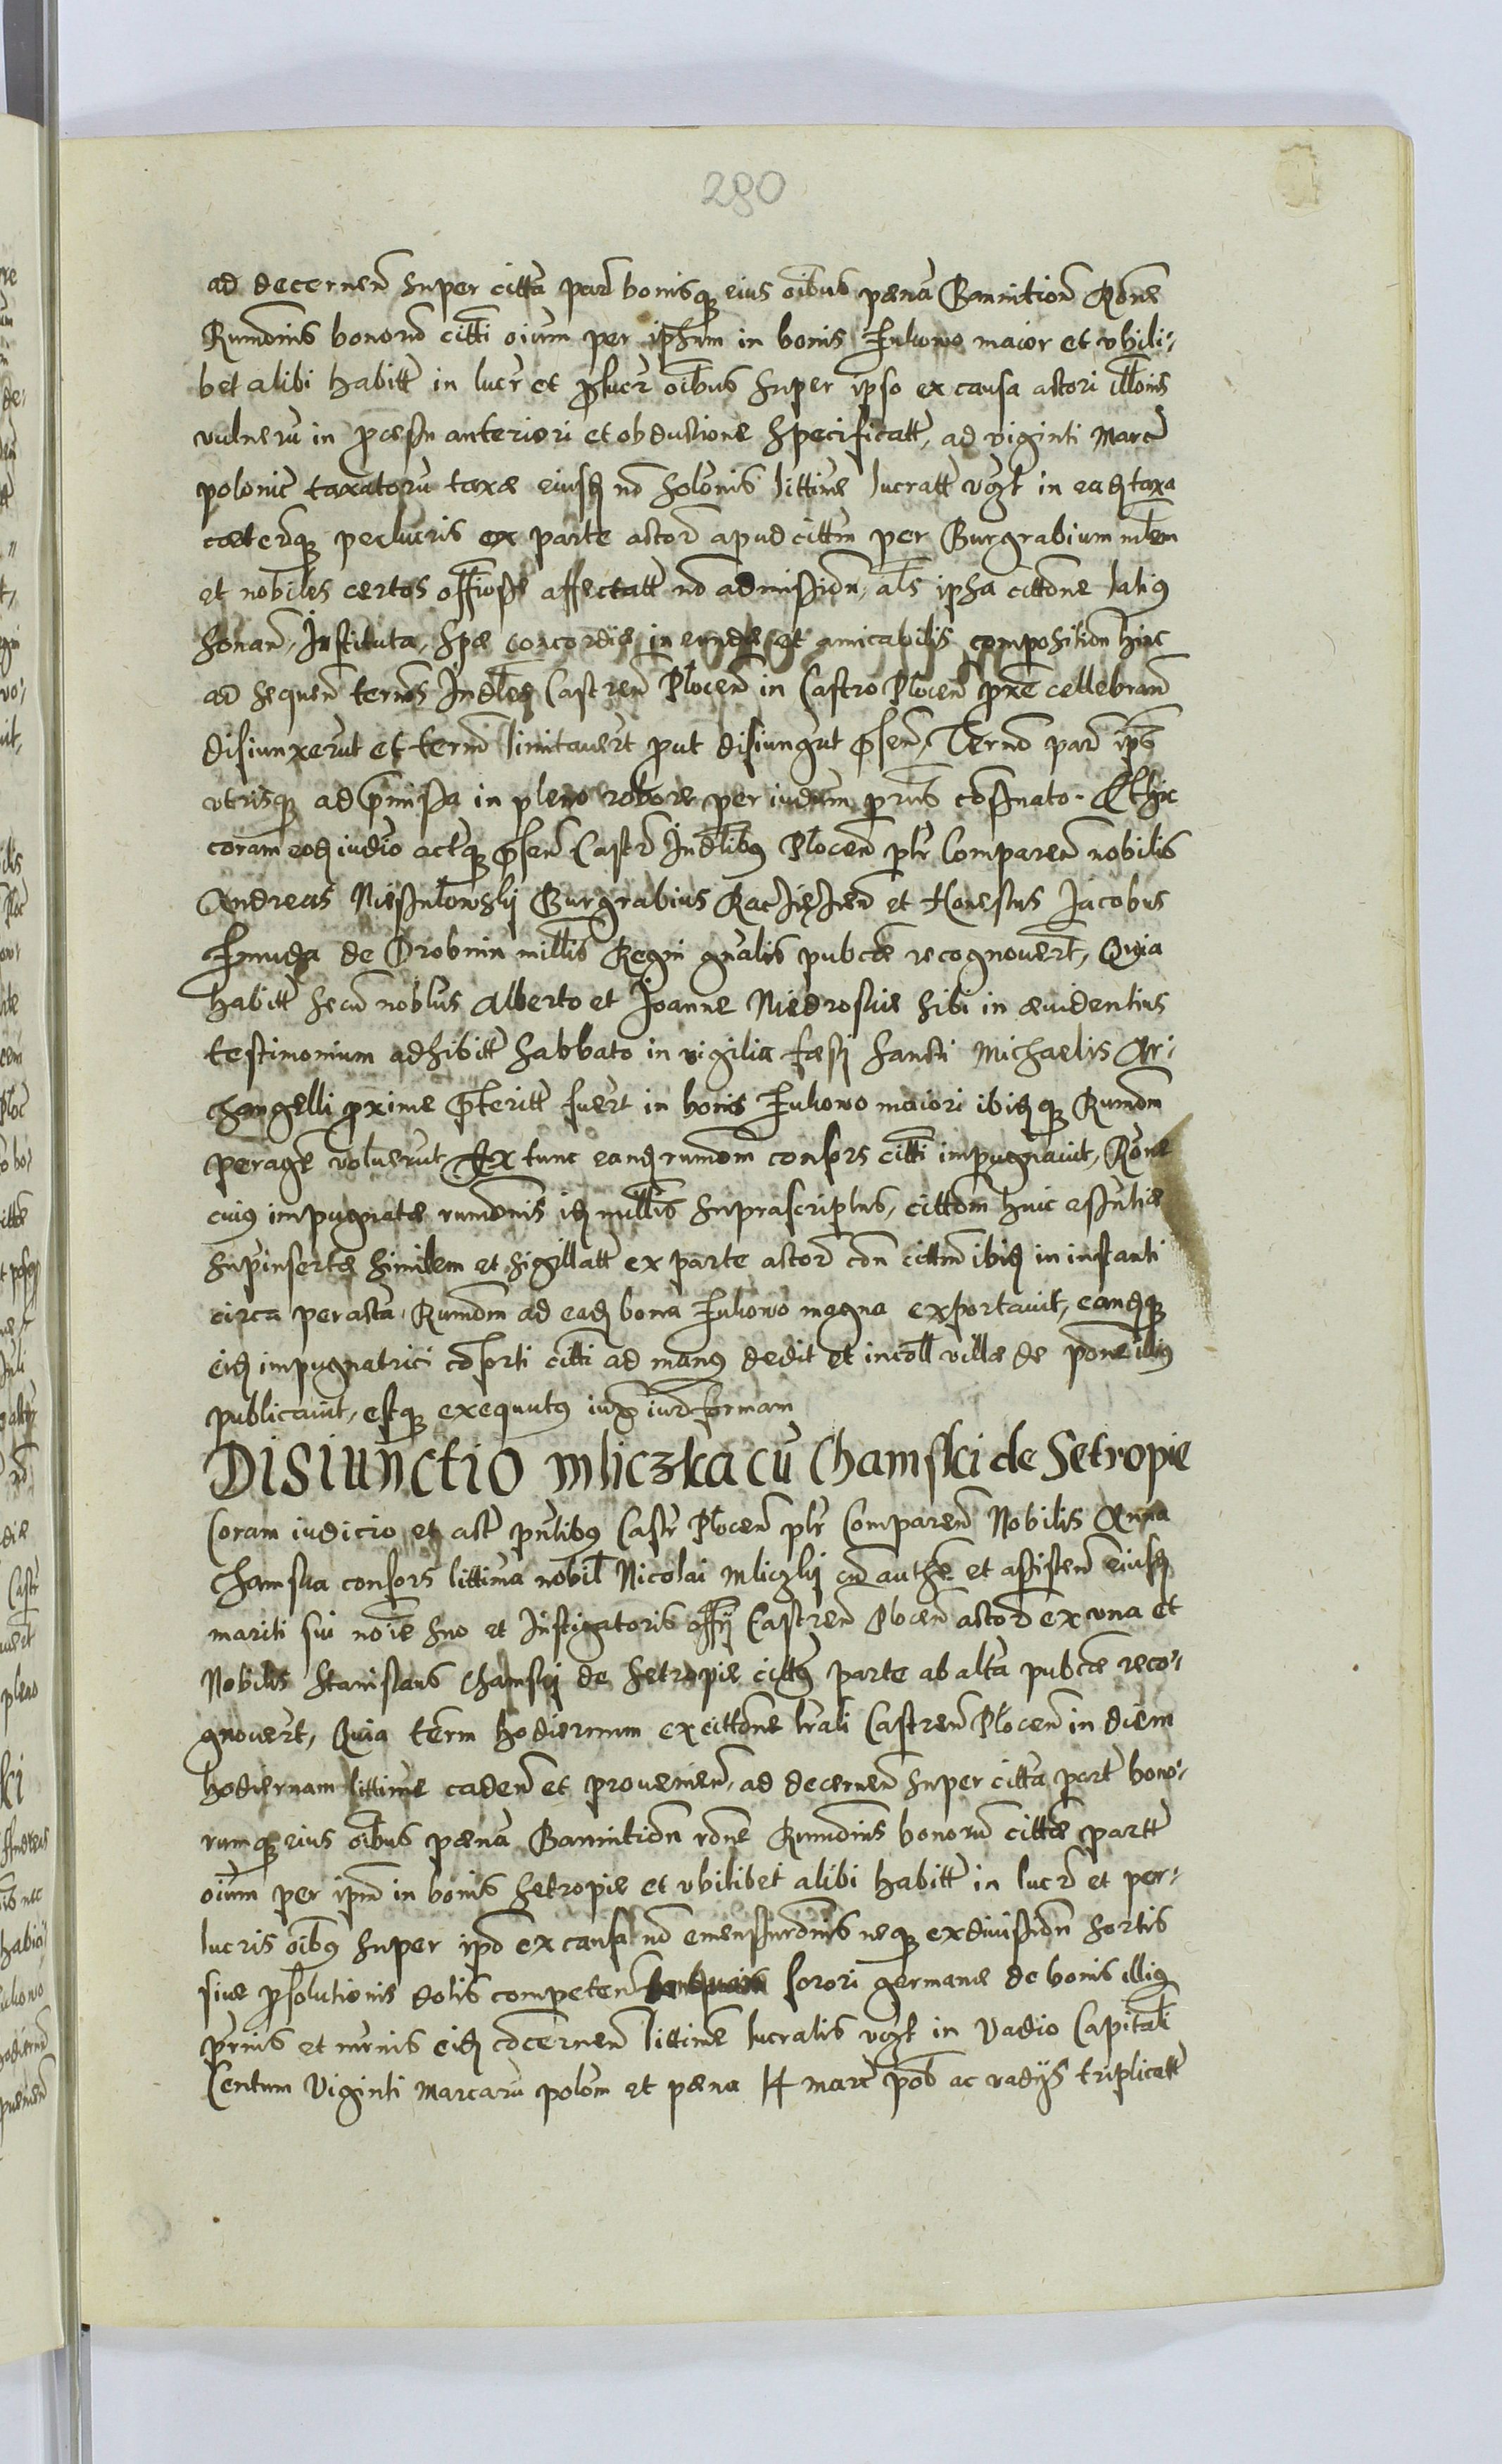 280
ad decernen super citta par bonisq eius oibus pæna Bannition Rone
Rumonis bonoru citti oium per ipsum in bonis Łukowo maior et vbili-
bet alibi habitt in lucr et perlucr oibus super ipso ex causa actori illonis
vulneru in process anteriori et obductione specificatt, ad viginti Marc
polonic taxatoru taxæ eiusd no solonis littime lucratt vigt in ead taxa
cæterisq perlucris ex parte actor apud cittm per Burgrabium mlem
et nobiles certos officiose affectatt no admission, als ipsa cittone latius
sonan, Instituta, spe concordiæ ineundæ et amicabilis composition hinc
ad sequen termos Indles Castren Plocen in Castro Plocen pxe cellebran
disiunxerut et termi limitavert put disiungut psen, Termo par ipis
vtrisq ad pmissa in pleno robore per iudium prtis consnato. Et hic
coram eod iudio actisq psen Castr Indlibus Plocen plr Comparen nobilis
Andreas Nieszulowskij Burgrabius Raciążen et Honestus Jacobus
Żmuda de Drobnin millis Regni gnalis pubce recognovert, Quia
habitt secu noblus Alberto et Joanne Niedroskie sibi in æuidentius
testimonium adhibitt sabbato in vigilia fæsti sancti Michaelis Ar-
changelli pxime pterit fuert in bonis Łukowo maiori ibidq Rumom
peragere voluerut Ex tunc eand rumom consors citti impugnauit, Rone
cuius impugnatæ rumonis id millis suprascriptus, cittom huic
supinsertæ similem et sigillatt ex parte actor con cittm ibid in instanti
circa peracta Rumom ad ead bona Łukowo magna exportauit, eandq
eid impugnatrici consorti citti ad manus dedit et incoll villæ de pone illius
publicauit, estq exequutus iuxta iuris formam
Disiunctio mliczka cu Chamski de Setropie
Coram iudicio et act pntibus Castr Plocen plr Comparen Nobilis Anna
Chamska consors littima nobil Nicolai Mliczkij cu authe et assisten eiusd
mariti sui noie suo et Instigatoris offij Castren Plocen actor ex vna et
Nobilis Stanislaus Chamskij de Setropie cittus parte ab altra pubce reco-
gnouert, Quia term hodiernum ex cittone lrali Castren Plocen in diem
hodiernam littime caden et prouenien, ad decernen super citta part bono-
rumq eius oibus pæna Bannition rone Rumonis bonoru cittæ partt
oium per ipm in bonis Setropie et vbilibet alibi habitt in lucr et per-
lucris oibus super ipo ex causa no emensuronis neq ex diuision sortis
siue psolutionis dotis competen sorori germanæ de bonis illius
prnis et mrnis eid concernen littime lucralis vigt in Vadio Capitali
Centum Viginti Marcaru polon et pæna 14 marc pos ac vadijs triplicatt